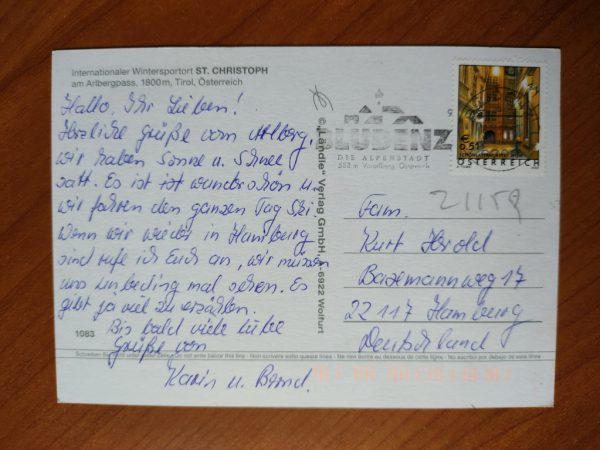 Internationaler Wintersportort ST. CHRISTOPH
am Arlbergpass, 1800 m, Tirol, Österreich
Hallo, Ihr Lieben!
Herzliche Grüße vom Arlberg,
wir haben Sonne u. Schnee
satt. Es ist ist wunderschön u.
wir fahren den ganzen Tag Ski
Wenn wir wieder in Hamburg
sind rufe ich Euch an, wir müssen
uns unbeding mal sehen. Es
gibt ja viel zu erzählen.
Bis bald viele liebe
Grüße von
Karin u. Bernd.
1083
© „Ländle" Verlag GmbH, A-6922 Wolfurt
BLUDENZ
DIE ALPENSTADT
Vorarlberg, Österreich
€ 0,51
ÖSTERREICH
21159
Fam.
Kurt Herold
17
22117 Hamburg
Deutschland
Schreiben Sie bitte unter diese Do not write below this line - Non scrivere sotto questa linea - Ne rien écrire au dessous de cette ligne - No escribir por debajo de esta línea